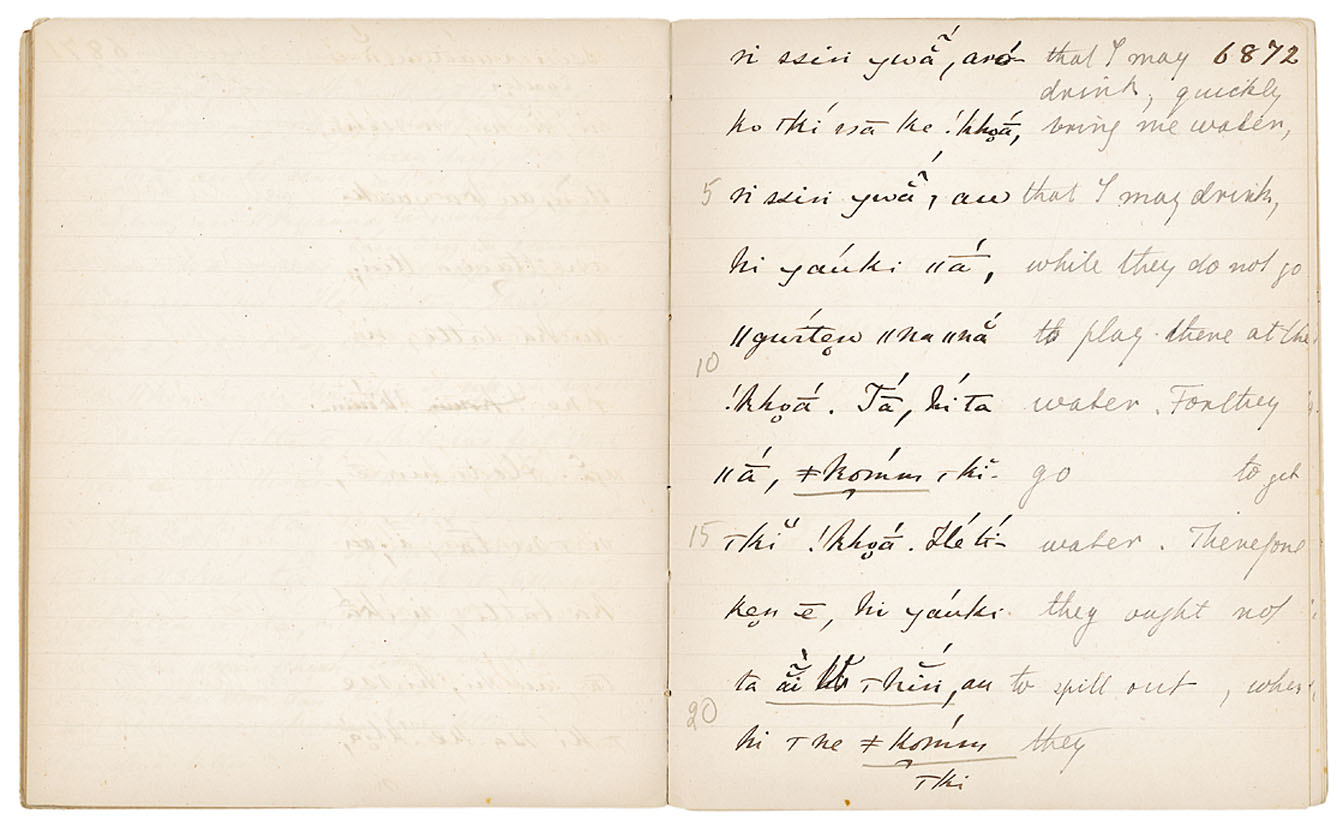 6872
n ssin ywã́, aró- that I may
drink, quickly
ko ⊤kí ssā ke !khoá̄, bring me water,
5 n ssin ywã́, au that I may drink,
hi yaúki ǁā́, while they do not go
ǁgúïten ǁna ǁnắ to play there at the
10
!khoá̄. Tā́, hí ta water. For they
ǁā́, ǂkómm ⊤kĭ- go to get
15 ⊤kĭ !khoá̄. Hé tí- water. Therefore
ken ē, hi yaúki they ought not
ta ⊤hĭń, au to spill out, when
20
hi ⊤ne ǂkómm they
⊤ki